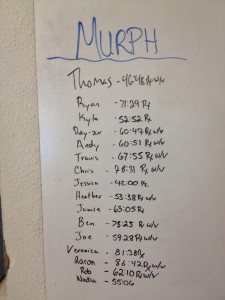 MURPH
Thomas - 46:48 Rx w/v
Ryan - 71:29 Rx
Kyle - 52:52 Rx
Ray-zor - 60:47 Rx w/v
Andy - 60:51 Rx w/v
Travis - 67:55 Rx w/v
Chris - 78:31 Rx w/v
Jessica - 42:00 Rx
Heather - 53:38 Rx w/v
Jamie - 63:05 Rx
Ben - 73:25 Rx w/v
Joe - 59:28 Rx w/v
Veronica - 81:38 Rx
Aaron - 86:42 Rx w/v
Rob - 62:10 Rx w/v
Nadia - 55:06